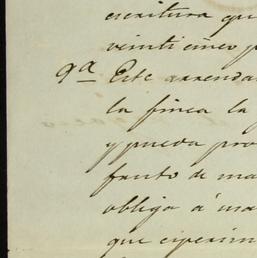 escritura que
veinti cinco p
9ª Este arrenda
la finca la
y pueda pro
fruto de ma
obliga á usa
que esperim